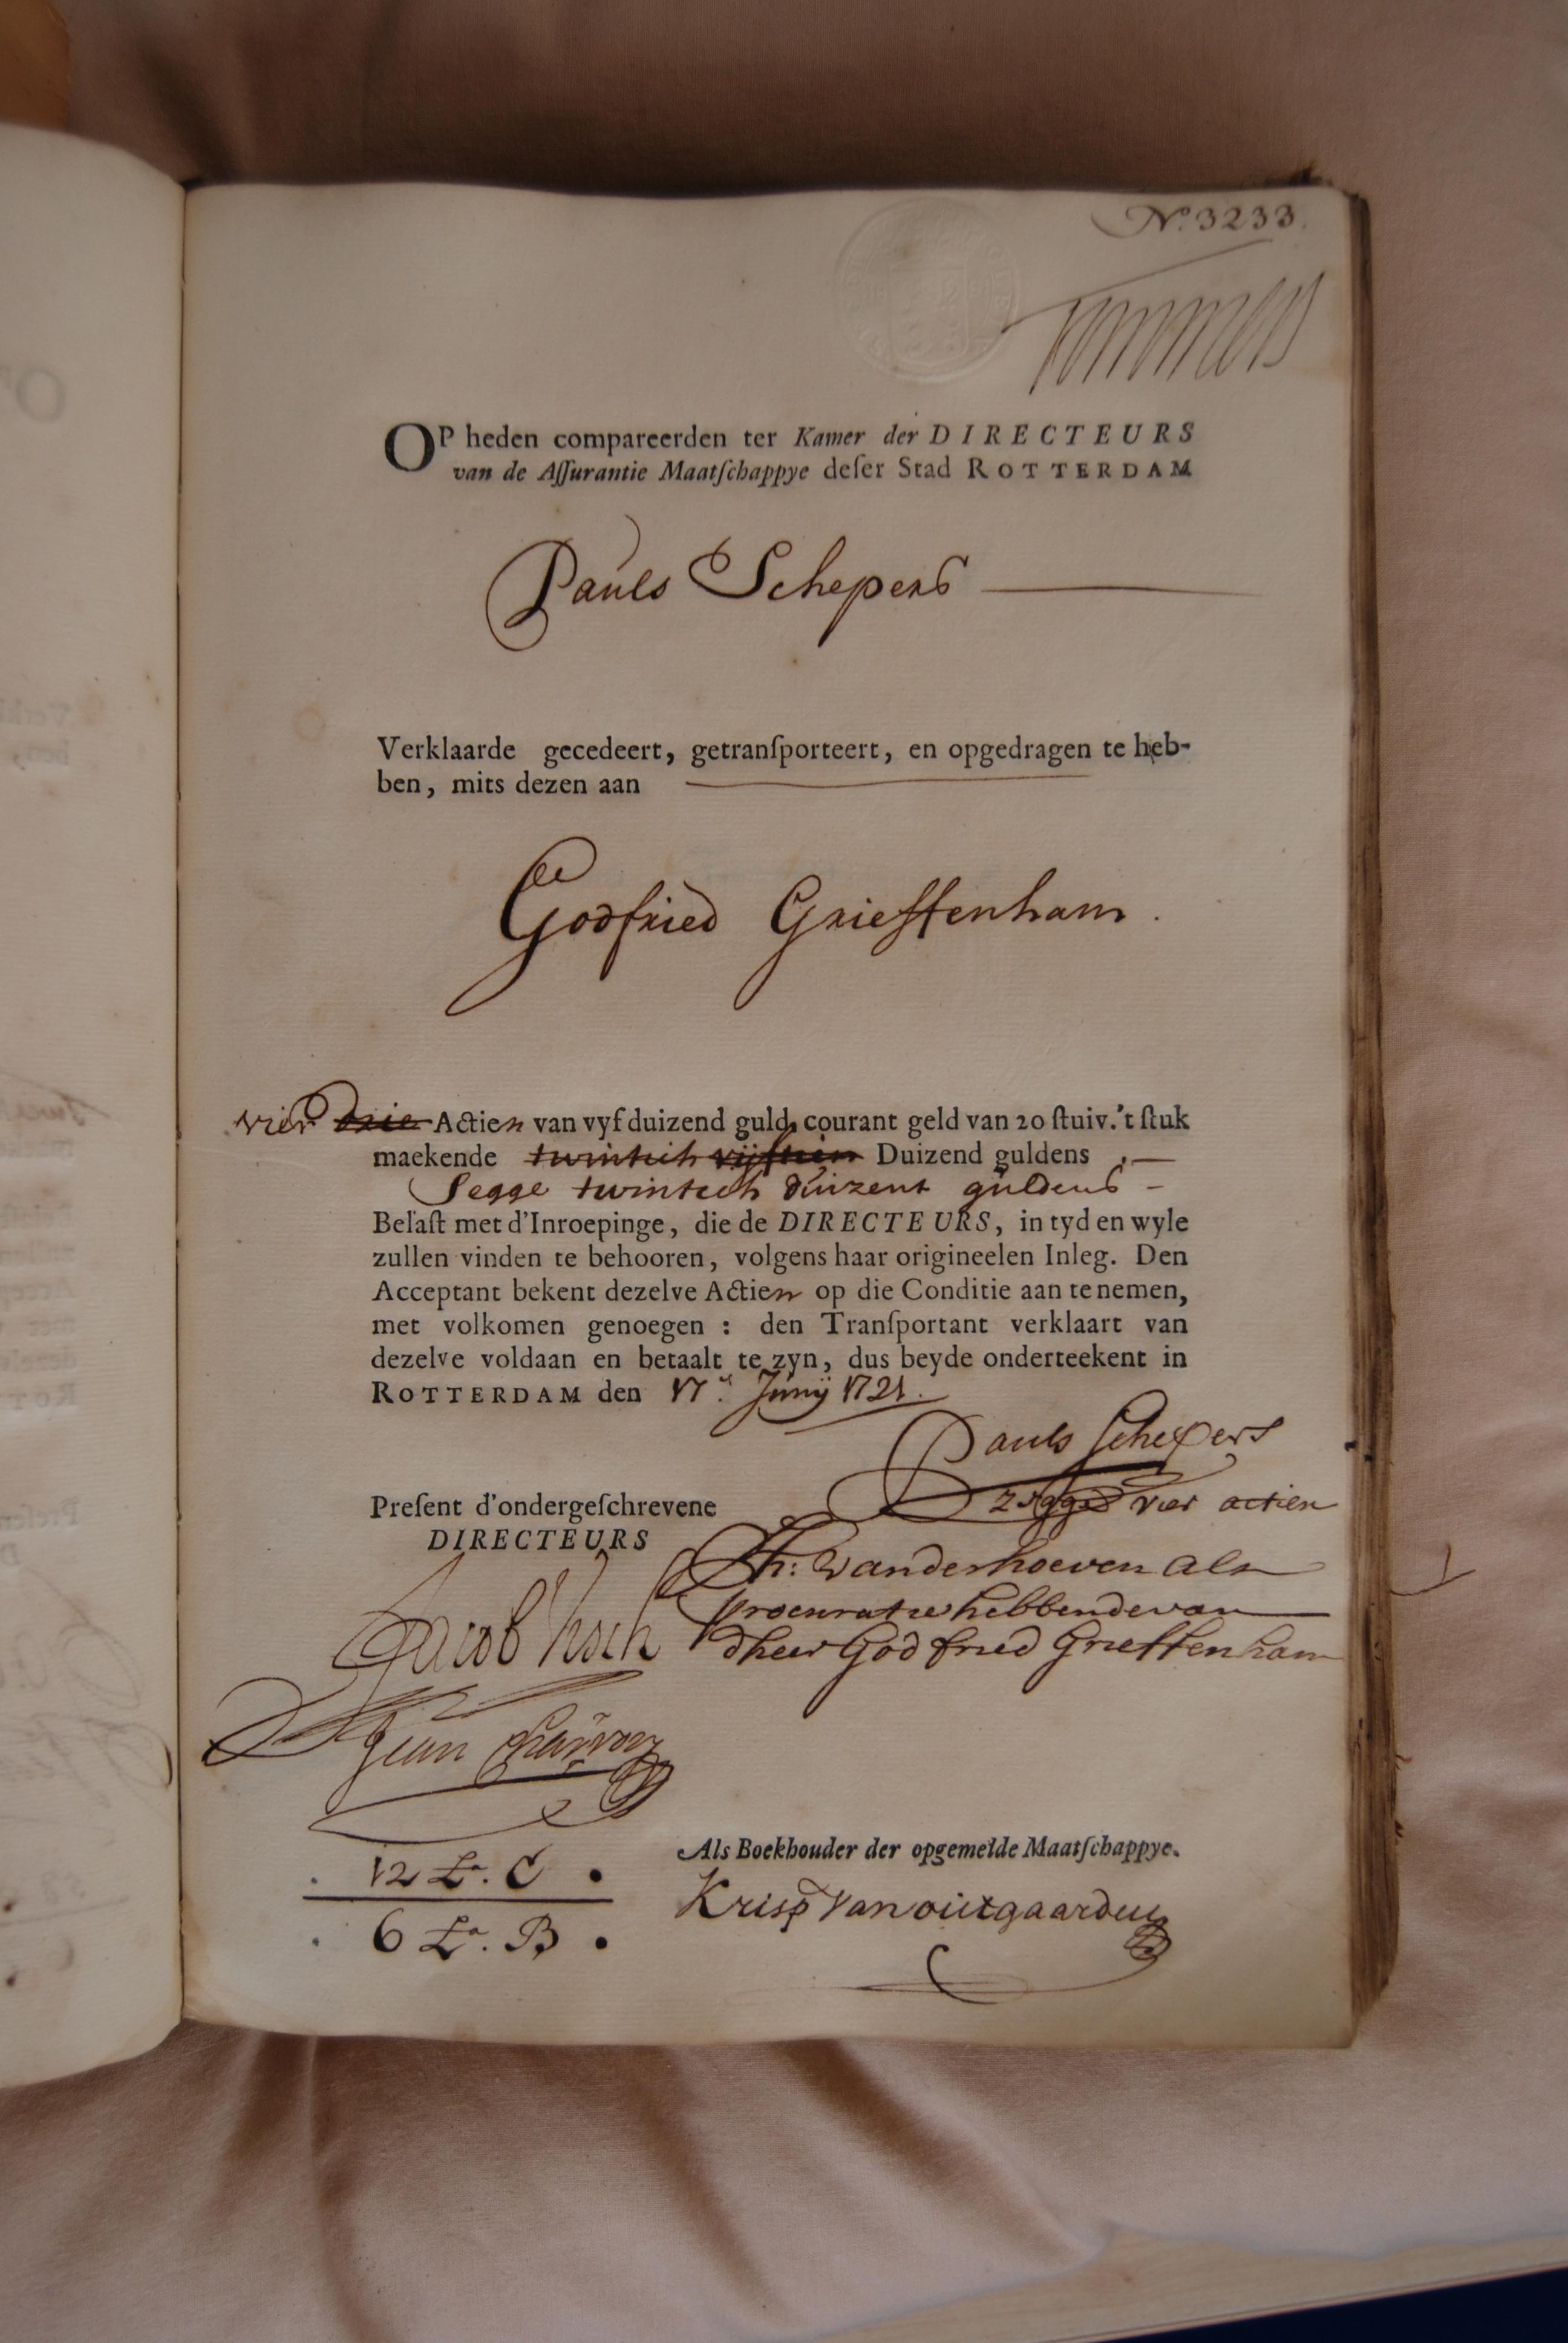 No. 3233.
OP heden compareerden ter Kamer der DIRECTEURS
van de Aſſurantie Maatſchappye deſer Stad ROTTERDAM
Pauls Schepers
Verklaarde gecedeert, getranſporteert, en opgedragen te heb-
ben, mits dezen aan
Godfried Grieffenham.
vier drie Actien van vyf duizend guld, courant geld van 20 ſtuiv. 't ſtuk
maekende twintich vijftien Duizend guldens
Segge twintech duizent guldens
Belaſt met d'Inroepinge, die de DIRECTEURS, in tyd en wyle
zullen vinden te behooren, volgens haar origineelen Inleg. Den
Acceptant bekent dezelve Actien op die Conditie aan te nemen,
met volkomen genoegen : den Tranſportant verklaart van
dezelve voldaan en betaalt te zyn, dus beyde onderteekent in
ROTTERDAM den 17 Junij 1721.
Pauls Schepers
vier actien
Preſent d'ondergeſchrevene
DIRECTEURS
vanderhoeven als
procuratie hebbende van
dheer Godfried Grieffenham
Jacob
Jean
12 La. C
6 La. B
Als Boekhouder der opgemelde Maatſchappye.
Krisp van outgaarden